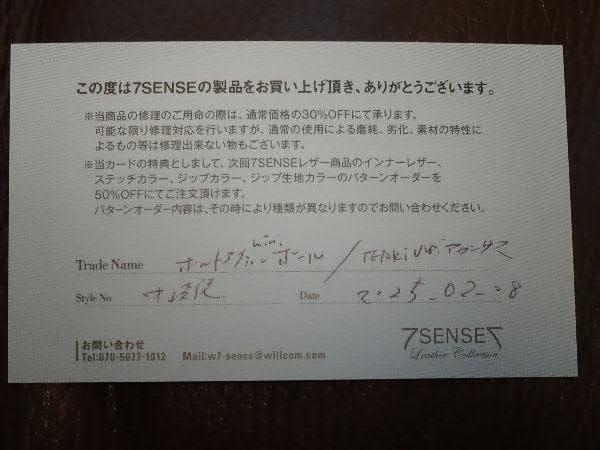 この度は7SENSEの製品をお買い上げ頂き、ありがとうございます。
※当商品の修理のご用命の際は、通常価格の30%OFFにて承ります。
可能な限り修理対応を行いますが、通常の使用による磨耗、劣化、素材の特性に
よるもの等は修理出来ない物もございます。
※当カードの特典としまして、次回7SENSEレザー商品のインナーレザー、
ステッチカラー、ジップカラー、ジップ生地カラーのパターンオーダーを
50%OFFにてご注文頂けます。
パターンオーダー内容は、その時により種類が異なりますのでお問い合わせください。
Trade Name / アカンサス
Style No
Date 2025-02-
7SENSE7
Leather Collection
お問い合わせ
Tel:070-5077-1012 Mail:w7-senss@willcom.com